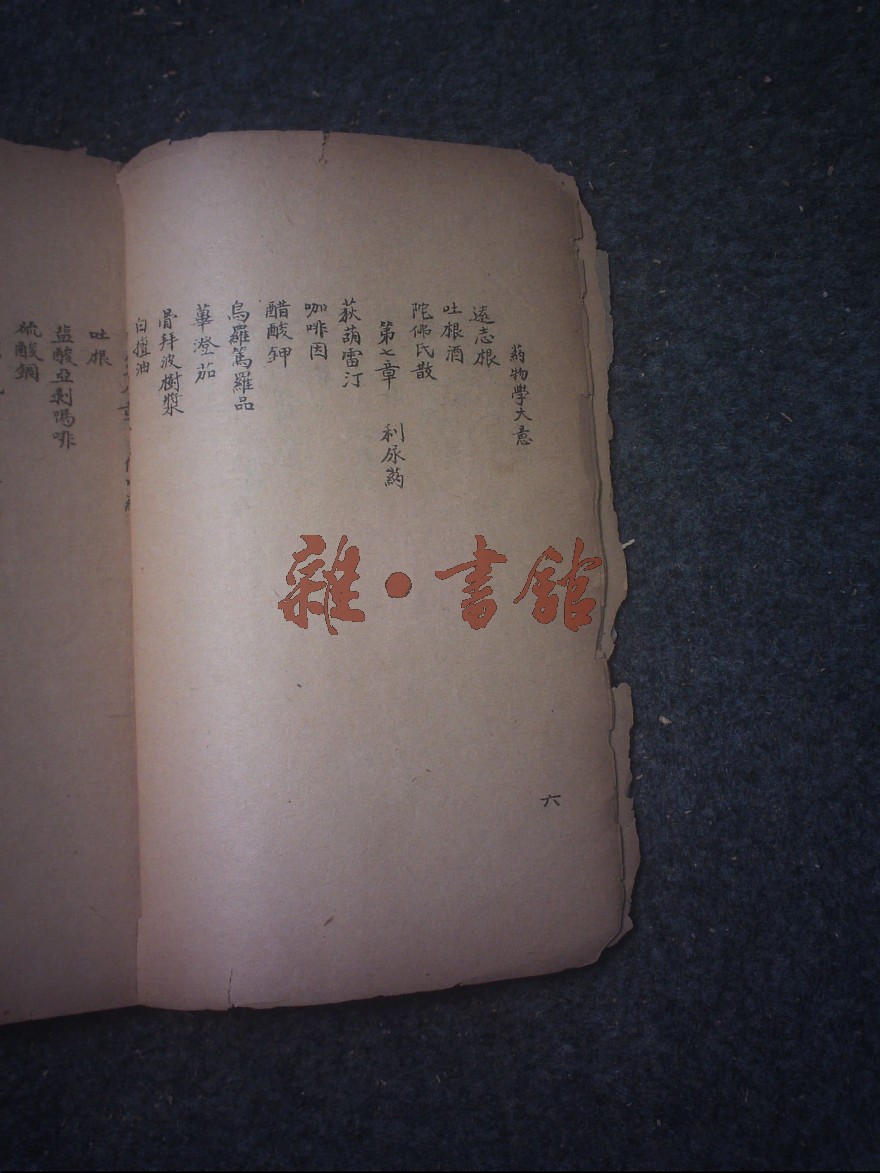 藥物學大意
遠志根
吐根酒
陀佛氏散
第七章 利尿藥
荻葫雷汀
咖啡因
醋酸鉀
烏羅篤羅品
蓽澄茄
骨拜波樹漿
白檀油
吐根
盐酸亞剥嗎啡
硫酸銅
六
雜·書館